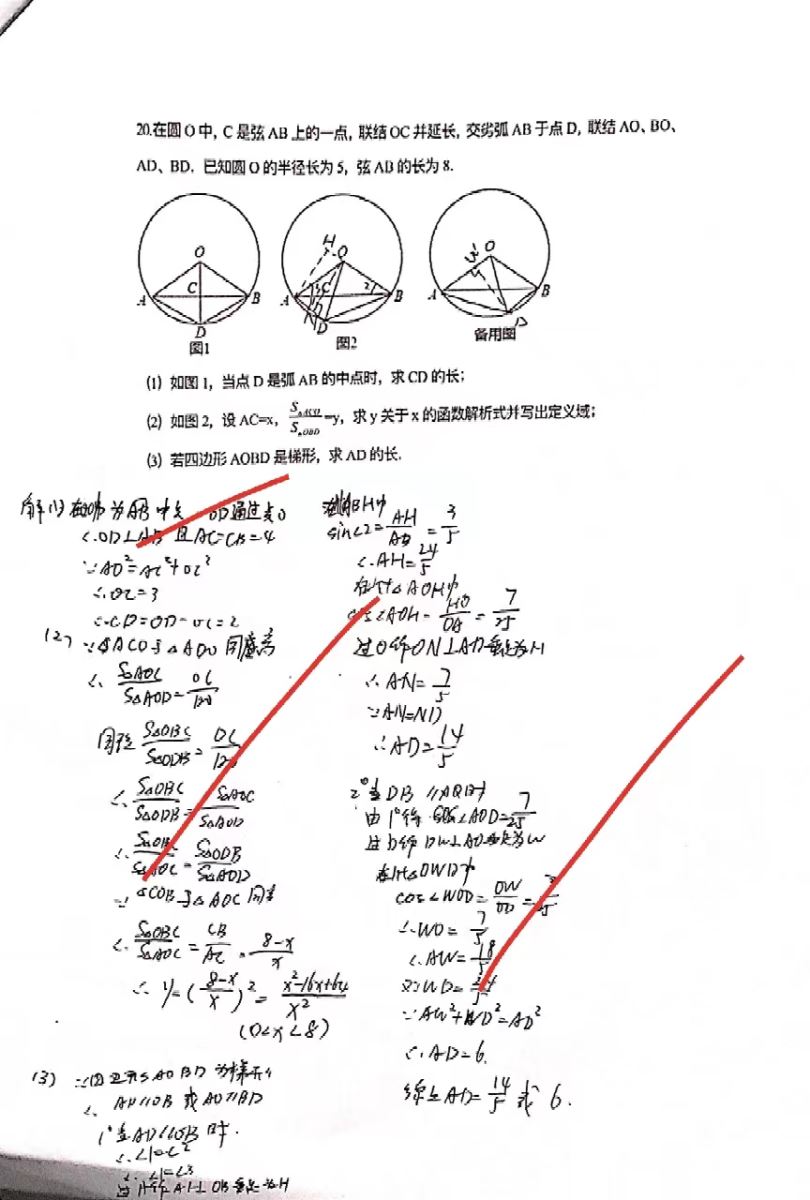 20.在圆O中，C是弦AB上的一点，联结OC并延长，交劣弧AB于点D，联结AO、BO、
AD、BD．已知圆O的半径长为5，弦AB的长为8.
O
C
A
B
D
图1
H
O
C
A
B
N
D
图2
W
O
A
B
D
备用图
(1) 如图1，当点D是弧AB的中点时，求CD的长；
(2) 如图2，设AC=x，S△ACO/S△OBD=y，求y关于x的函数解析式并写出定义域；
(3) 若四边形AOBD是梯形，求AD的长.
OD通过点O
∴OD⊥AB 且AC=CB=4
∵AO²=AC²+OC²
∴OC=3
∴CD=OD-OC=2
(2) ∵△ACO与△ADO同高
∴ S△AOC/S△AOD=OC/
同理 S△OBC/S△ODB=OC/
∴ S△OBC/S△ODB=S△AOC/S△AOD
∴ S△OBC/S△AOC=S△ODB/S△AOD
∵ △COB与△AOC同高
∴ S△OBC/S△AOC=CB/AC=8-x/x
∴ y=(8-x/x)²=x²-16x+64/x²
(0<x<8)
(3) ∵四边形AOBD为梯形
∴ AD//OB 或AO//BD
1°当AD//OB时.
∴∠1=∠2
∠1=∠3
过A作AH⊥OB垂足为H
sin∠2=AH/AB=3/5
∴AH=24/5
在Rt△AOH中
cos∠AOH=HO/OA=7/25
过O作ON⊥AD垂足为N
∴AN=7/5
∵AN=ND
∴AD=14/5
2°当DB//AO时
由1°得 cos∠AOD=7/25
过D作DW⊥AO垂足为W
在Rt△OWD中
cos∠WOD=OW/OD=7/25
∴WO=7/5
∴AW=18/5
又∵WD=24/5
∵AW²+WD²=AD²
∴AD=6.
综上AD=14/5或6.